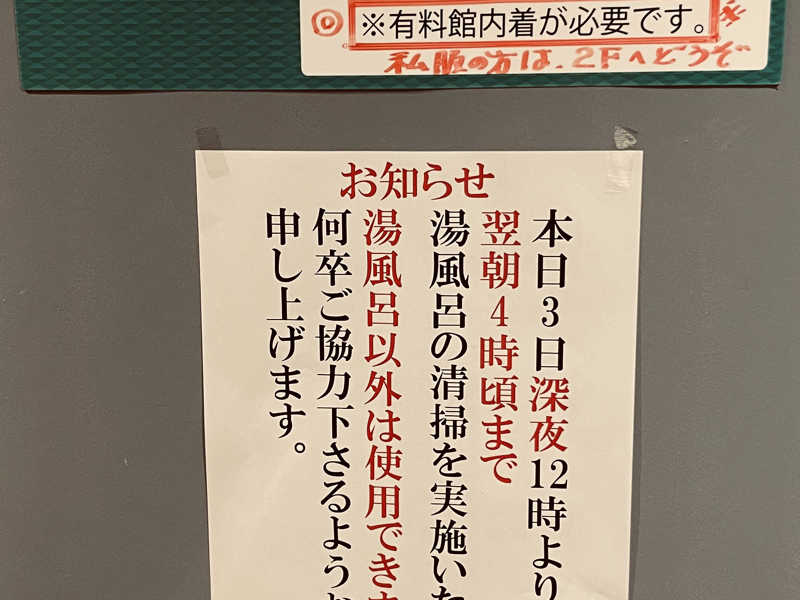 ◎ ※有料館内着が必要です。
私服の方は、2Fへどうぞ
お知らせ
本日3日深夜12時より
翌朝4時頃まで
湯風呂の清掃を実施いた
湯風呂以外は使用できま
何卒ご協力下さるようお
申し上げます。